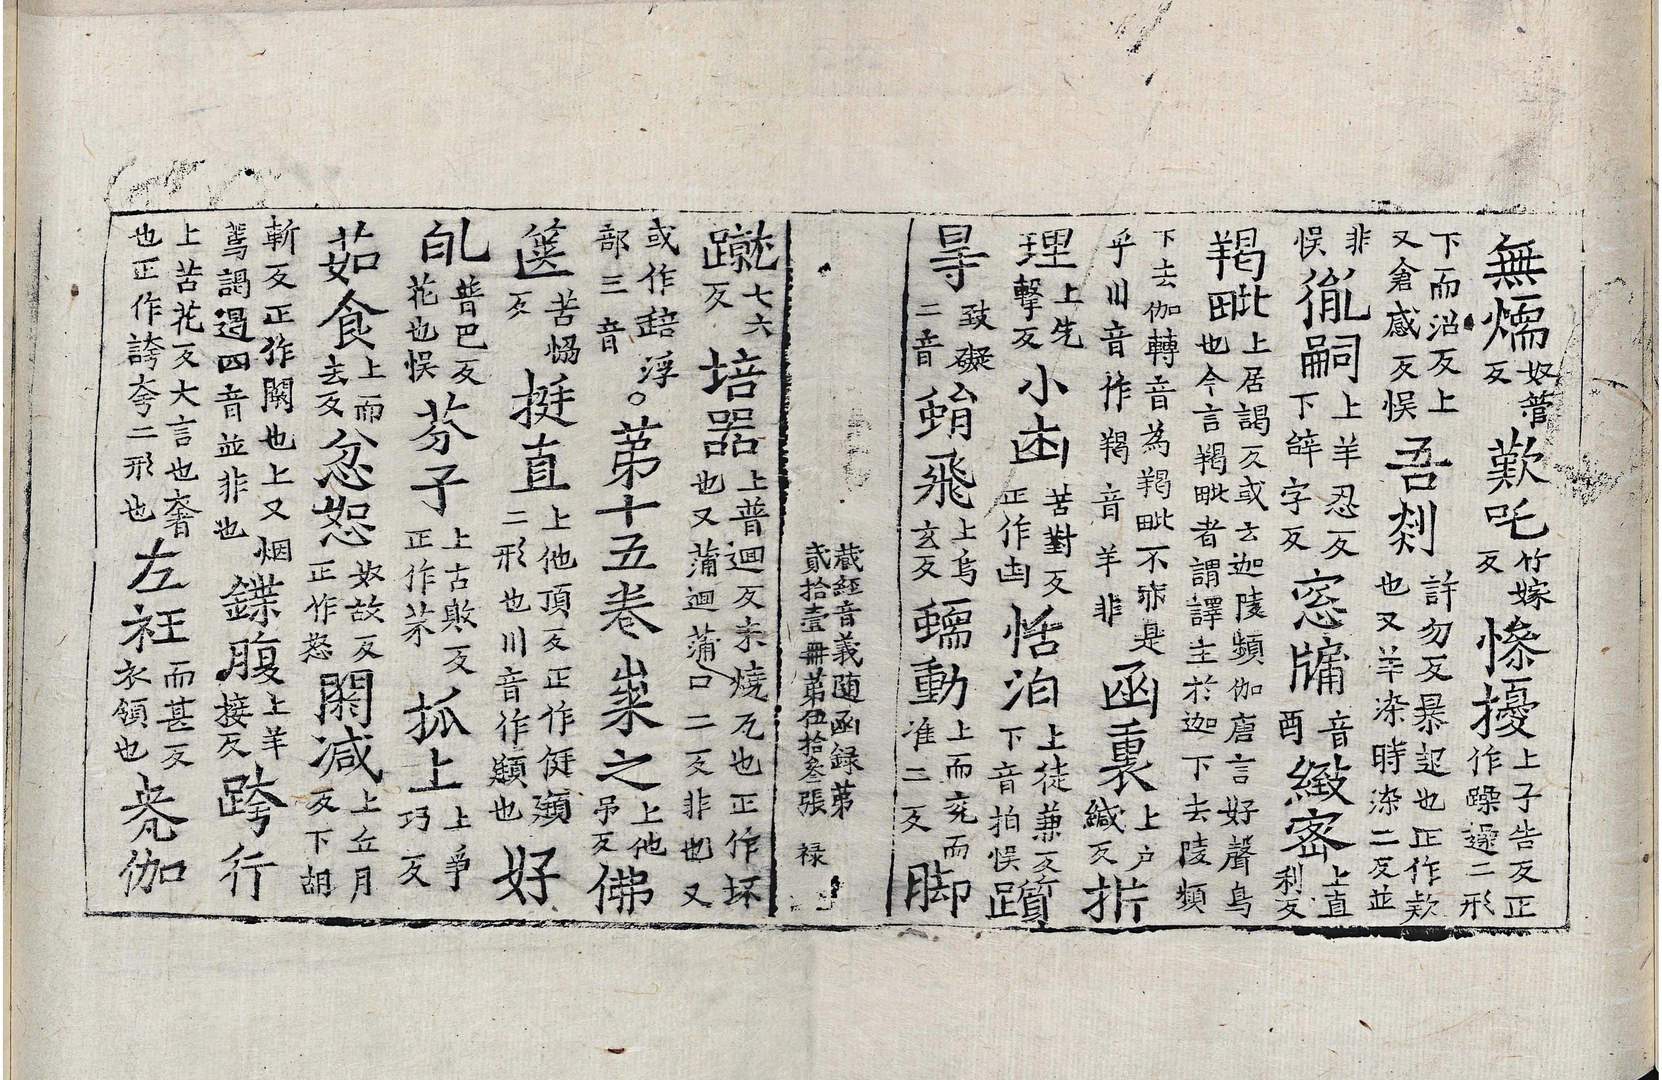 無煗奴管反歎吒竹嫁反慘擾上子告反正作躁邃二形
下而沼反上又倉感反悮吾剡許勿反暴起也正作欻也又羊染時染二反並
非悮胤嗣上羊忍反下辝字反窓牗音酉緻宻上直利反
羯毗上居謁反或云迦陵頻伽唐言好聲鳥也今言羯毗者謂譯主於迦下去陵頻
下去伽轉音為羯毗不乖是乎川音作羯音羊非函裏上户緘反折
理上先擊反小凷苦對反正作凷恬泊上徒兼反下音拍悮躓
㝵致礙二音蜎飛上烏玄反蠕動上而兖而准二反脚
藏經音義随函録第貳拾壹冊第伍拾叁張 禄
蹴七六反培器上普迴反未燒瓦也正作坏也又蒲迴蒲口二反非也又
或作錇浮部三音。第十五卷 粜之上他吊反佛
篋苦愶反挺直上他頂反正作侹頲二形也川音作頲也好
㿝普巴反花也悮芬子上古敗反正作芥抓上上爭巧反
茹食上而去反忿怒奴故反正作怒閑减上丘月反下胡
斬反正作闕也上又烟焉謁遏四音並非也鍱腹上羊接反跨行
上苦花反大言也奢也正作誇夸二形也左衽而甚反衣領也尧伽